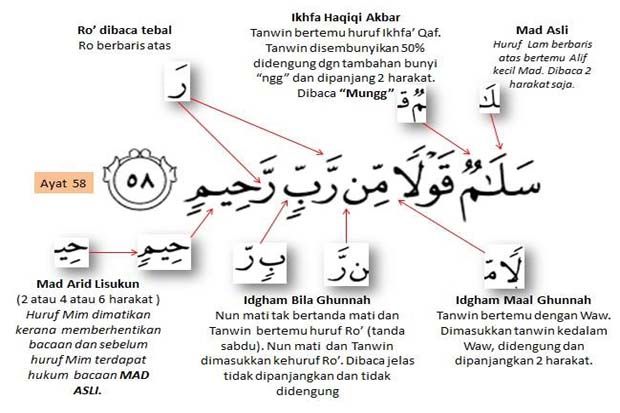 Ro’ dibaca tebal
Ro berbaris atas
رَ
Ikhfa Haqiqi Akbar
Tanwin bertemu huruf Ikhfa’ Qaf.
Tanwin disembunyikan 50%
didengung dgn tambahan bunyi
“ngg” dan dipanjang 2 harakat.
Dibaca “Mungg”
Mad Asli
Huruf Lam berbaris
atas bertemu Alif
kecil Mad. Dibaca 2
harakat saja.
Ayat 58
سَلَـٰمٌ قَوْلًا مِّن رَّبٍّ رَّحِيمٍ ٥٨
حِيمٍ
حِيـ
بٍ رّ
ن رَّ
لًا مّـ
Mad Arid Lisukun
(2 atau 4 atau 6 harakat )
Huruf Mim dimatikan
kerana memberhentikan
bacaan dan sebelum
huruf Mim terdapat
hukum bacaan MAD
ASLI.
Idgham Bila Ghunnah
Nun mati tak bertanda mati dan
Tanwin bertemu huruf Ro’ (tanda
sabdu). Nun mati dan Tanwin
dimasukkan kehuruf Ro’. Dibaca jelas
tidak dipanjangkan dan tidak
didengung
Idgham Maal Ghunnah
Tanwin bertemu dengan Waw.
Dimasukkan tanwin kedalam
Waw, didengung dan
dipanjangkan 2 harakat.